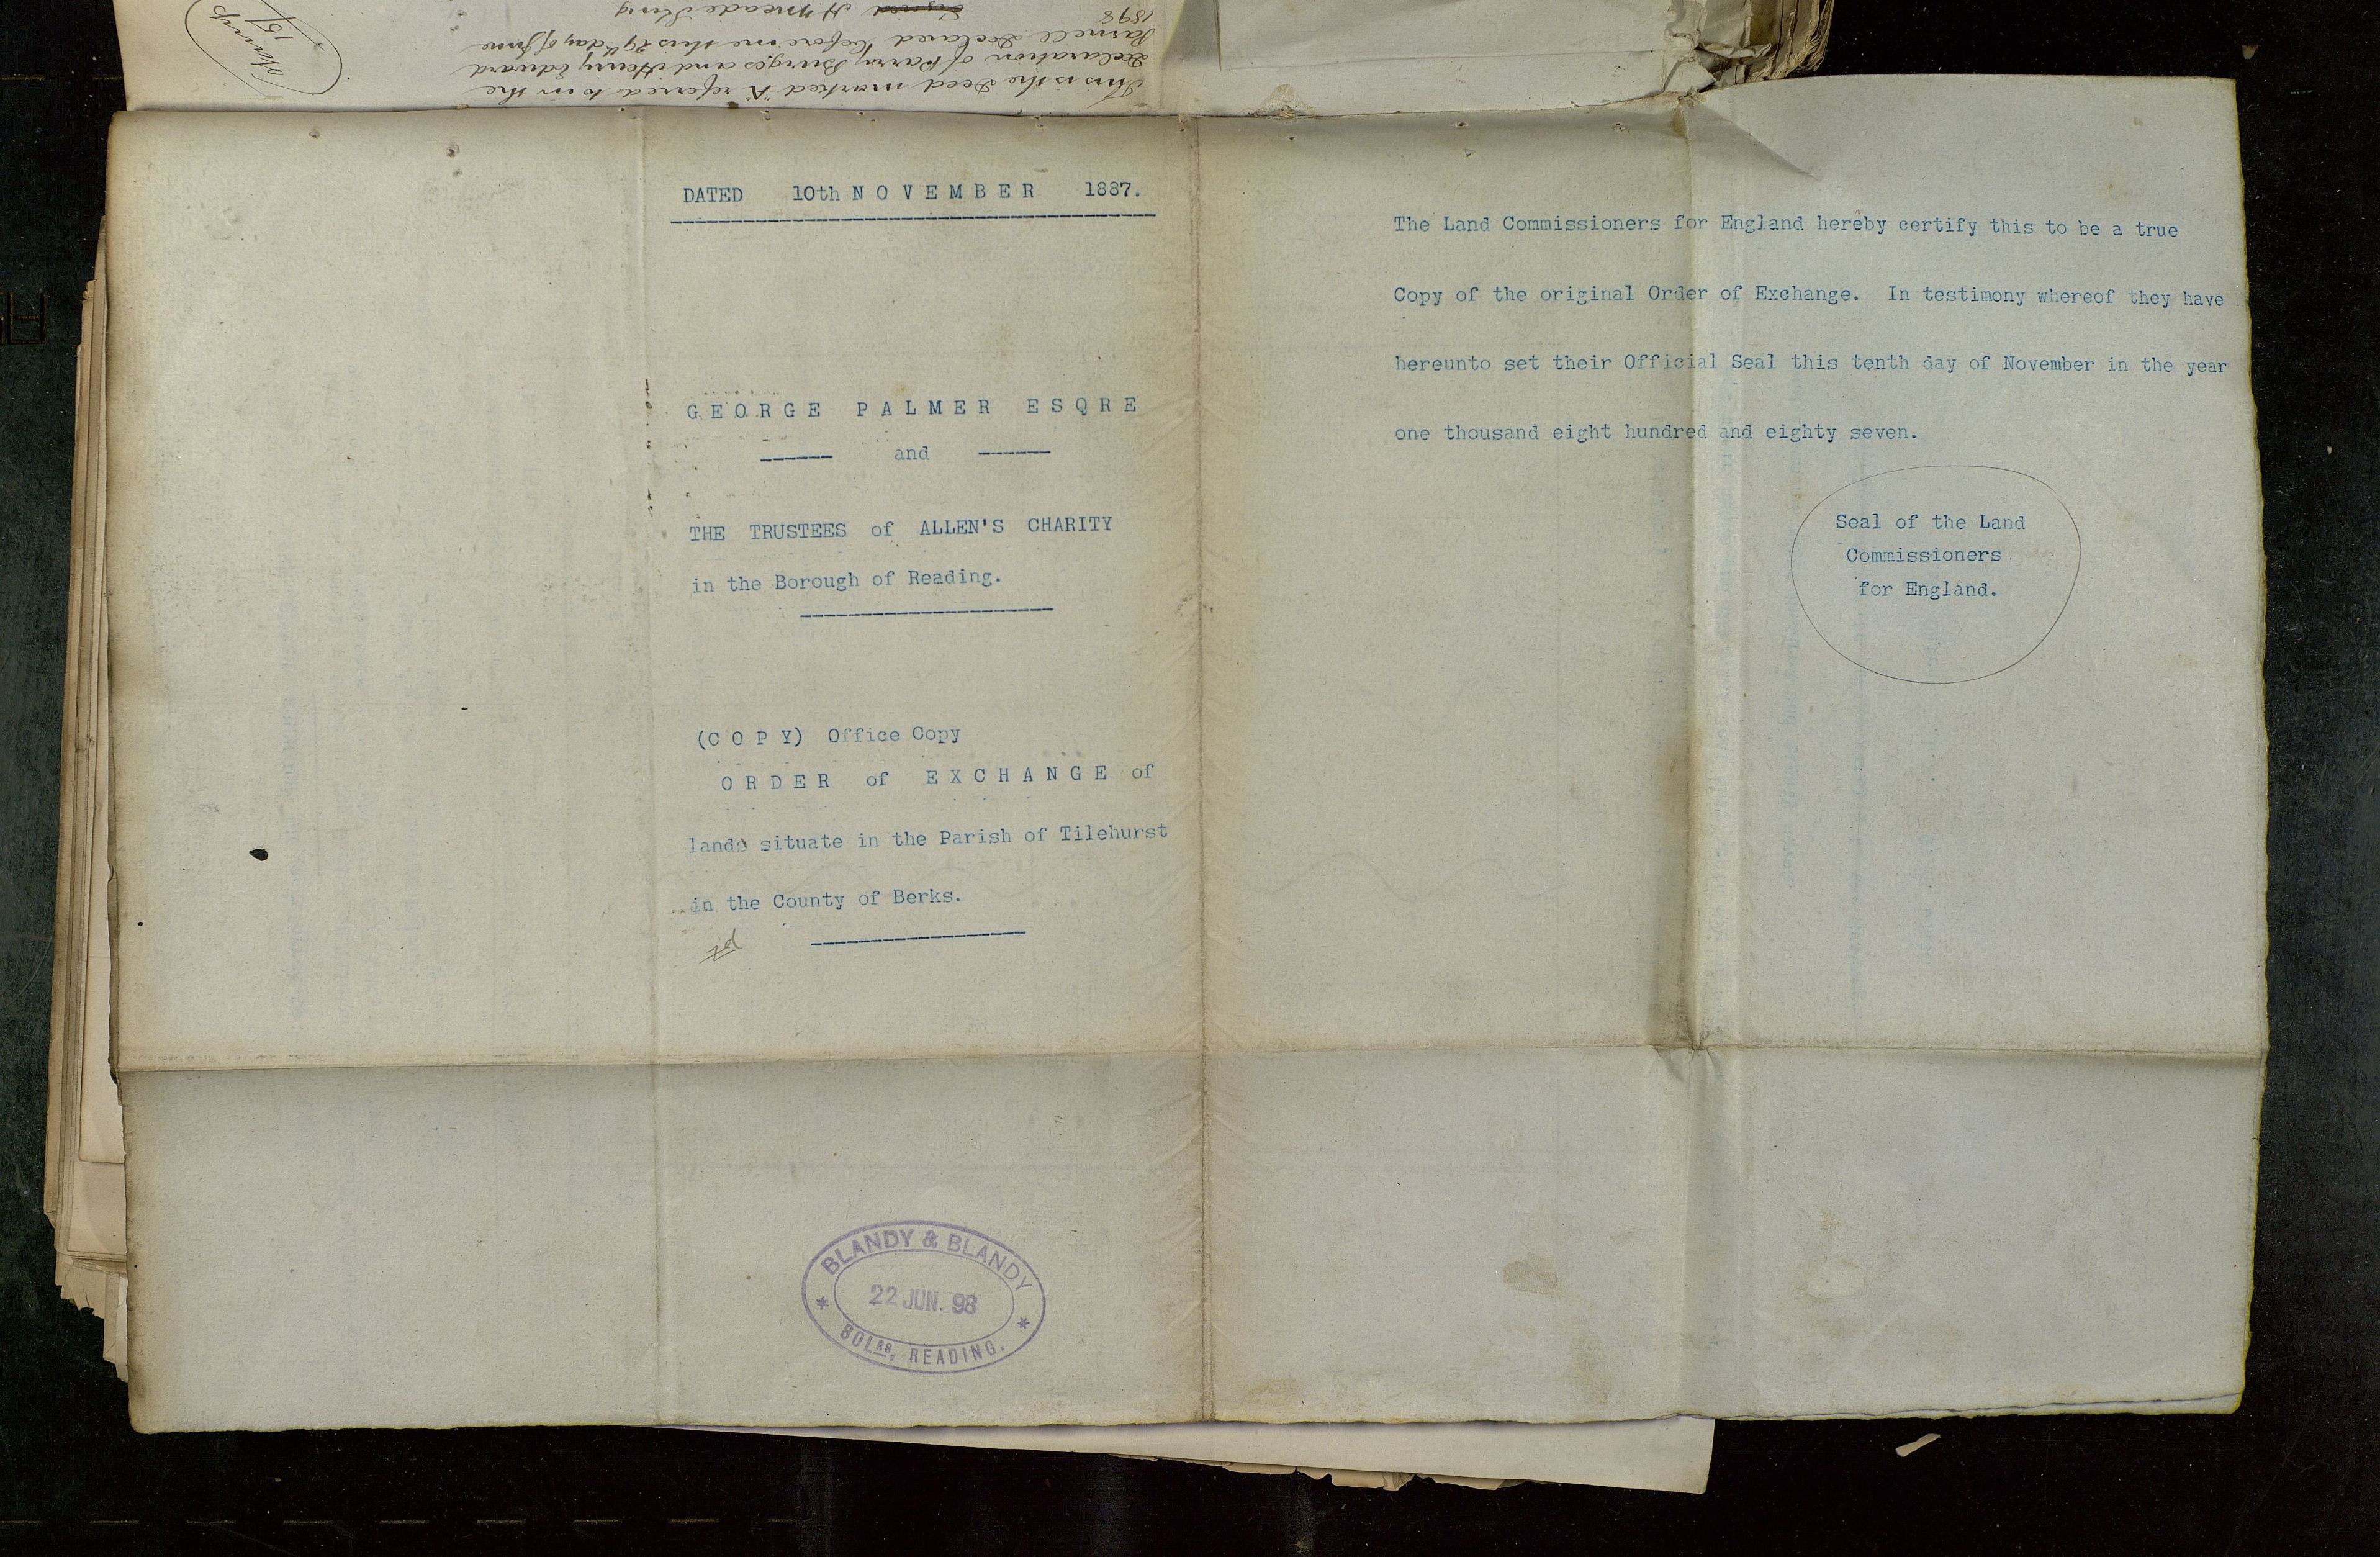 This is the Deed marked "A" referred to in the
Declaration of Parry Burges and Henry Edward
Parnell Declared before me this 29th day of June
1898
H Meade King
DATED 10th NOVEMBER 1887.
GEORGE PALMER ESQRE
and
THE TRUSTEES of ALLEN'S CHARITY
in the Borough of Reading.
(COPY) Office Copy
ORDER of EXCHANGE of
lands situate in the Parish of Tilehurst
in the County of Berks.
BLANDY & BLANDY
22 JUN. 98
SOLRS, READING.
The Land Commissioners for England hereby certify this to be a true
Copy of the original Order of Exchange. In testimony whereof they have
hereunto set their Official Seal this tenth day of November in the year
one thousand eight hundred and eighty seven.
Seal of the Land
Commissioners
for England.